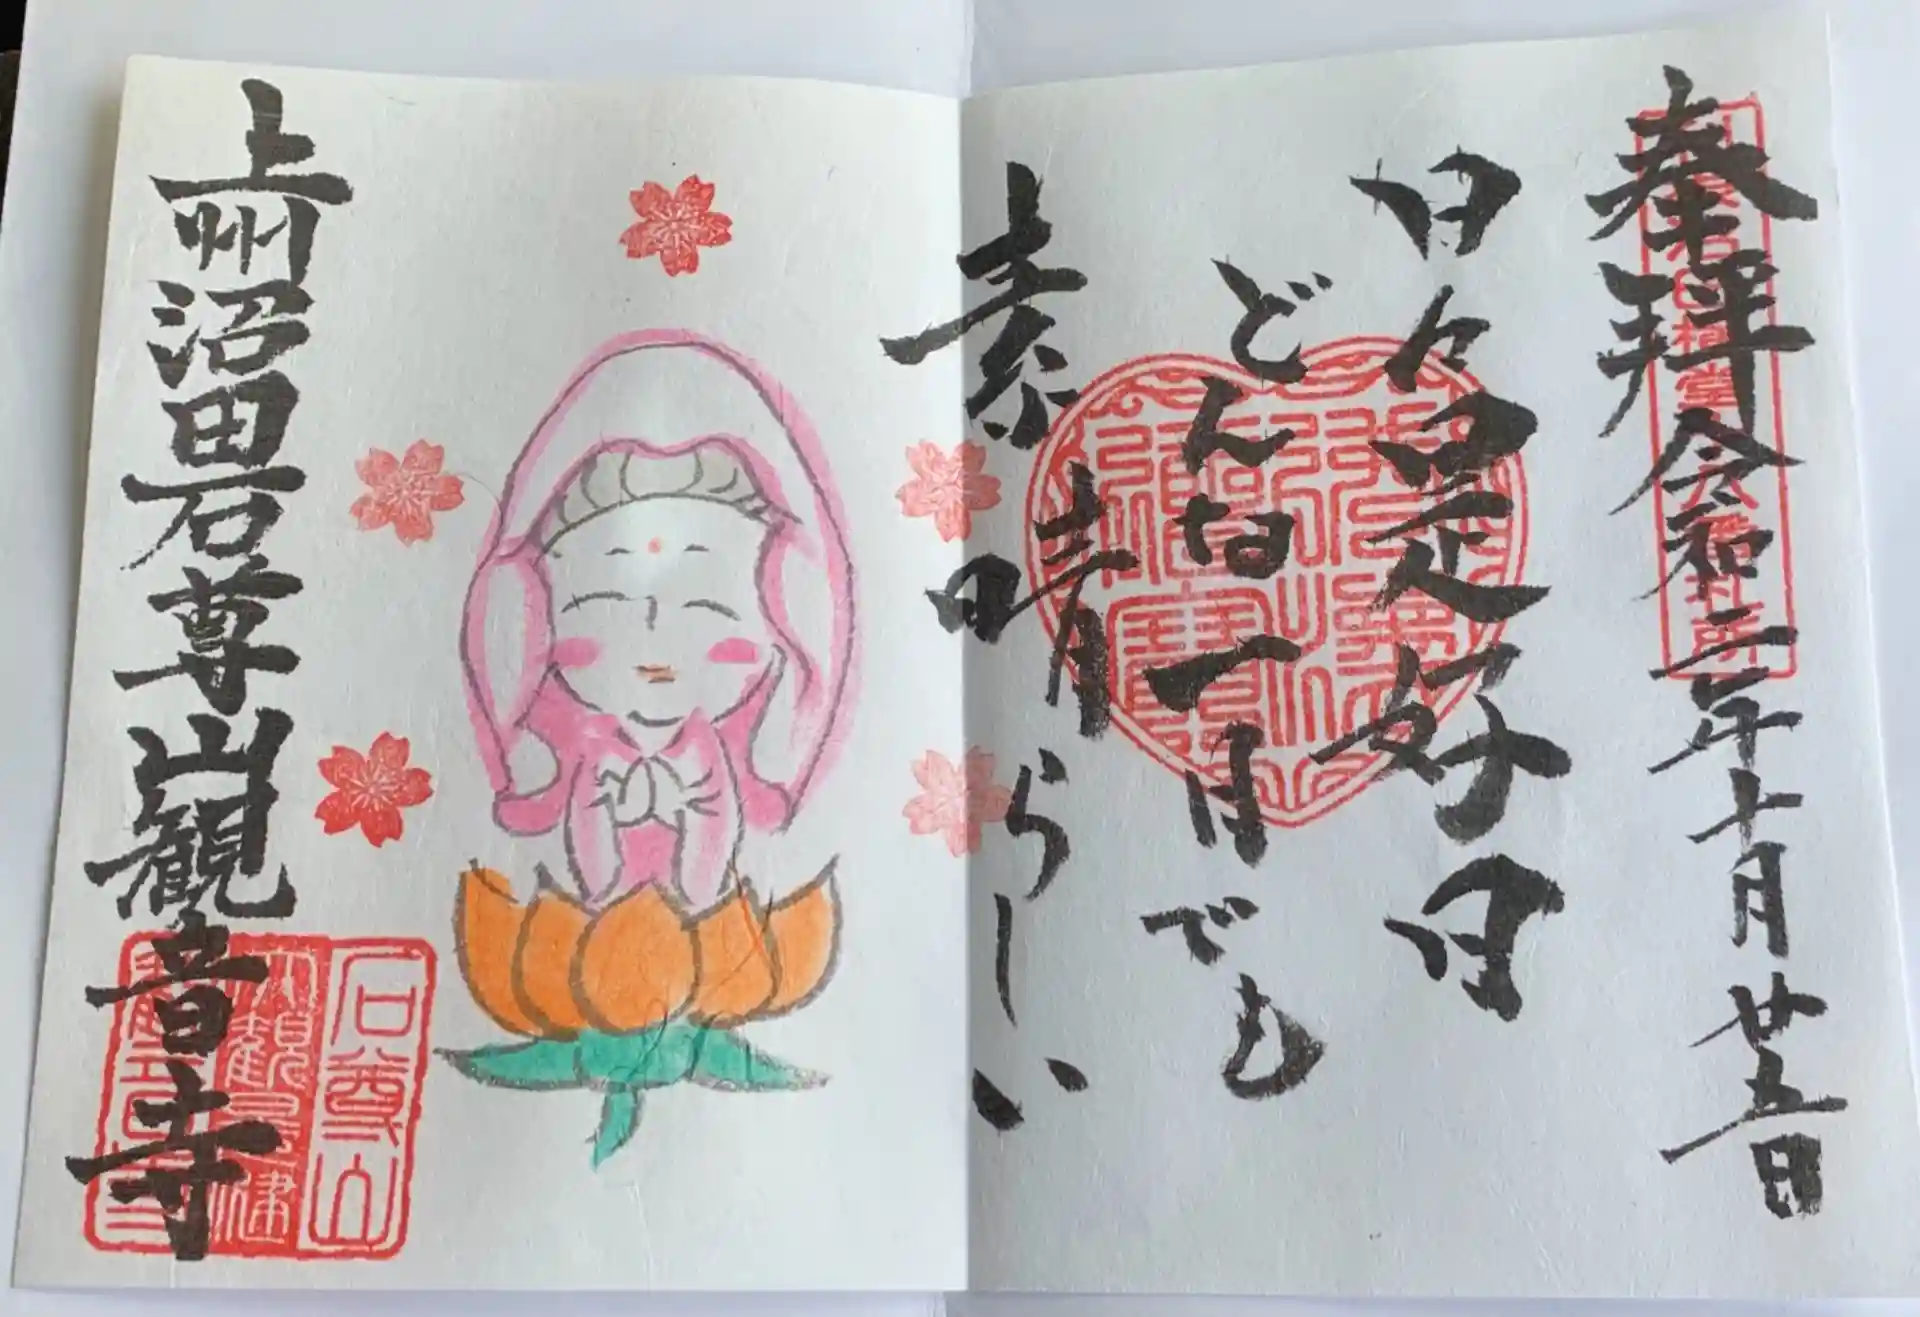 奉拝 令和二年十月廿五日
日々是好日
どんな一日でも
素晴らしい
上州沼田石尊山観音寺
石尊山